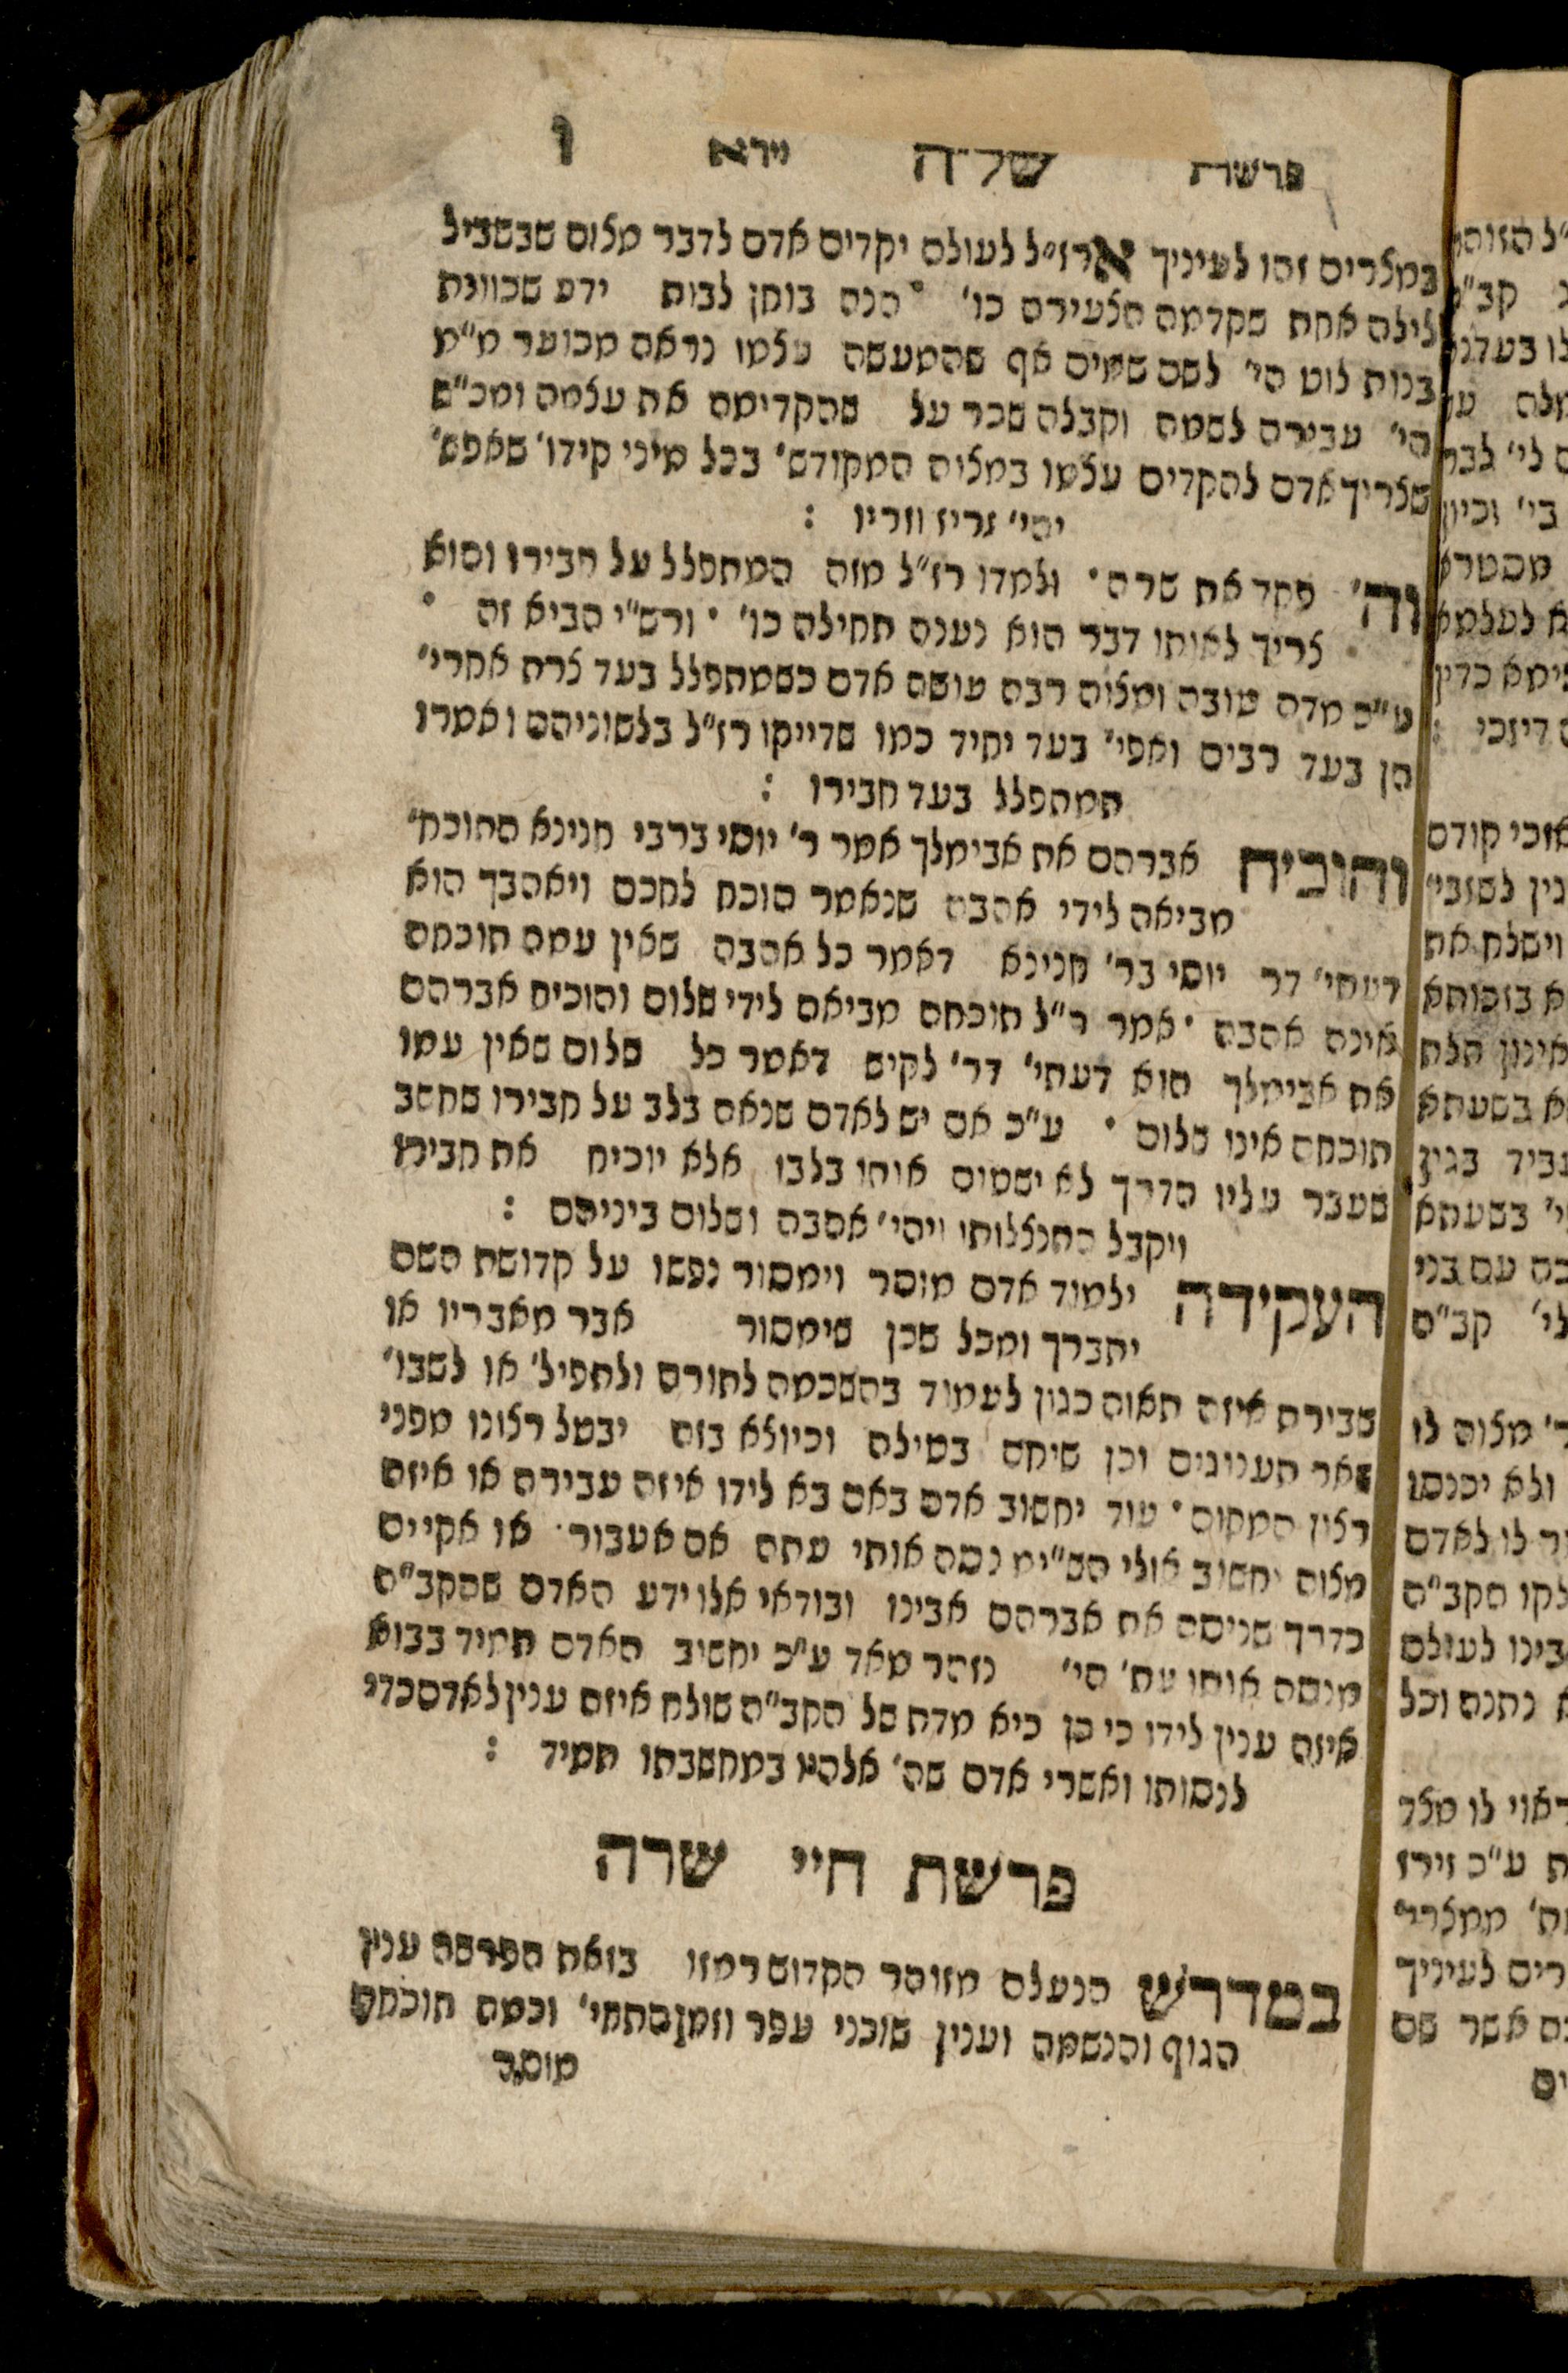 פרשת של״ה וירא ו
במצרים זהו לעיניך ארז״ל לעולם יקדים אדם לדבר מצוה שבשביל
לילה אחת שקדמה הצעירה כו׳ • הנה בוחן לבות ידע שכוונת
בנות לוט הי׳ לשם שמים אף שהמעשה עצמו נראה מכוער מ״מ
הי׳ עבירה לשמה וקבלה שכר על שהקדימה את עצמה ומכ״ש
שצריך אדם להקדים עצמו במצוה המקודש׳ בכל מיני קידו׳ שאפש׳
יהי׳ זריז וזריז :
וה׳ פקד את שרה • ולמדו רז״ל מזה המתפלל על חבירו והוא
צריך לאותו דבר הוא נענה תחילה כו׳ • ורש״י הביא זה •
ע״כ מדה טובה ומצוה רבה עושה אדם כשמתפלל בעד צרת אחרי׳
הן בעד רבים ואפי׳ בעד יחיד כמו שדייקו רז״ל בלשוניהם ואמרו
המתפלל בעד חבירו :
והוכיח אברהם את אבימלך אמר ר׳ יוסי ברבי חנינא התוכח׳
מביאה לידי אהבה שנאמר הוכח לחכם ויאהבך הוא
דעתי׳ דר יוסי בר׳ חנינא דאמר כל אהבה שאין עמה תוכחה
אינה אהבה • אמר ר״ל תוכחה מביאה לידי שלום והוכיח אברהם
את אבימלך הוא דעתי׳ דר׳ לקיש דאמר כל שלום שאין עמו
תוכחה אינו שלום • ע״כ אם יש לאדם שנאה בלב על חבירו שחשב
שעבר עליו הדרך לא ישטים אותו בלבו אלא יוכיח את חבירו
ויקבל התנצלותו ויהי׳ אהבה ושלום ביניהם :
העקידה ילמוד אדם מוסר וימסור נפשו על קדושת השם
יתברך ומכל שכן שימסור אבר מאבריו או
שבירת איזה תאוה כגון לעמוד בהשכמה לתורה ולתפיל׳ או לשבו׳
שאר תענוגים וכן שיחה בטילה וכיוצא בזה יבטל רצונו מפני
רצון המקום • עוד יחשוב אדם באם בא לידו איזה עבירה או איזה
מצוה יחשוב אולי הש״ית נסה אותי עתה אם אעבור • או אקיים
כדרך שניסה את אברהם אבינו ובודאי אלו ידע האדם שהקב״ה
מנסה אותו עת׳ הי׳ נזהר מאד ע״כ יחשוב האדם תמיד בבוא
איזה ענין לידו כי כן היא מדת של הקב״ה שולח איזה ענין לאדם כדי
לנסותו ואשרי אדם שה׳ אלהיו במחשבתו תמיד :
פרשת חיי שרה
במדרש הנעלם מזוהר הקדוש רמזו בזאת הפרשה ענין
הגוף והנשמה וענין שוכני עפר וזמן התחי׳ וכמה תוכחת
מוסר